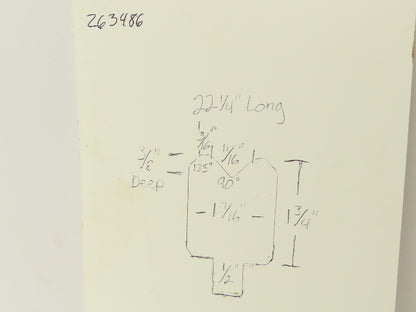 263486
22 1/4" Long
1 3/16" 11/16"
3/8" Deep
135°
90°
1 7/16"
1 3/4"
1/2"